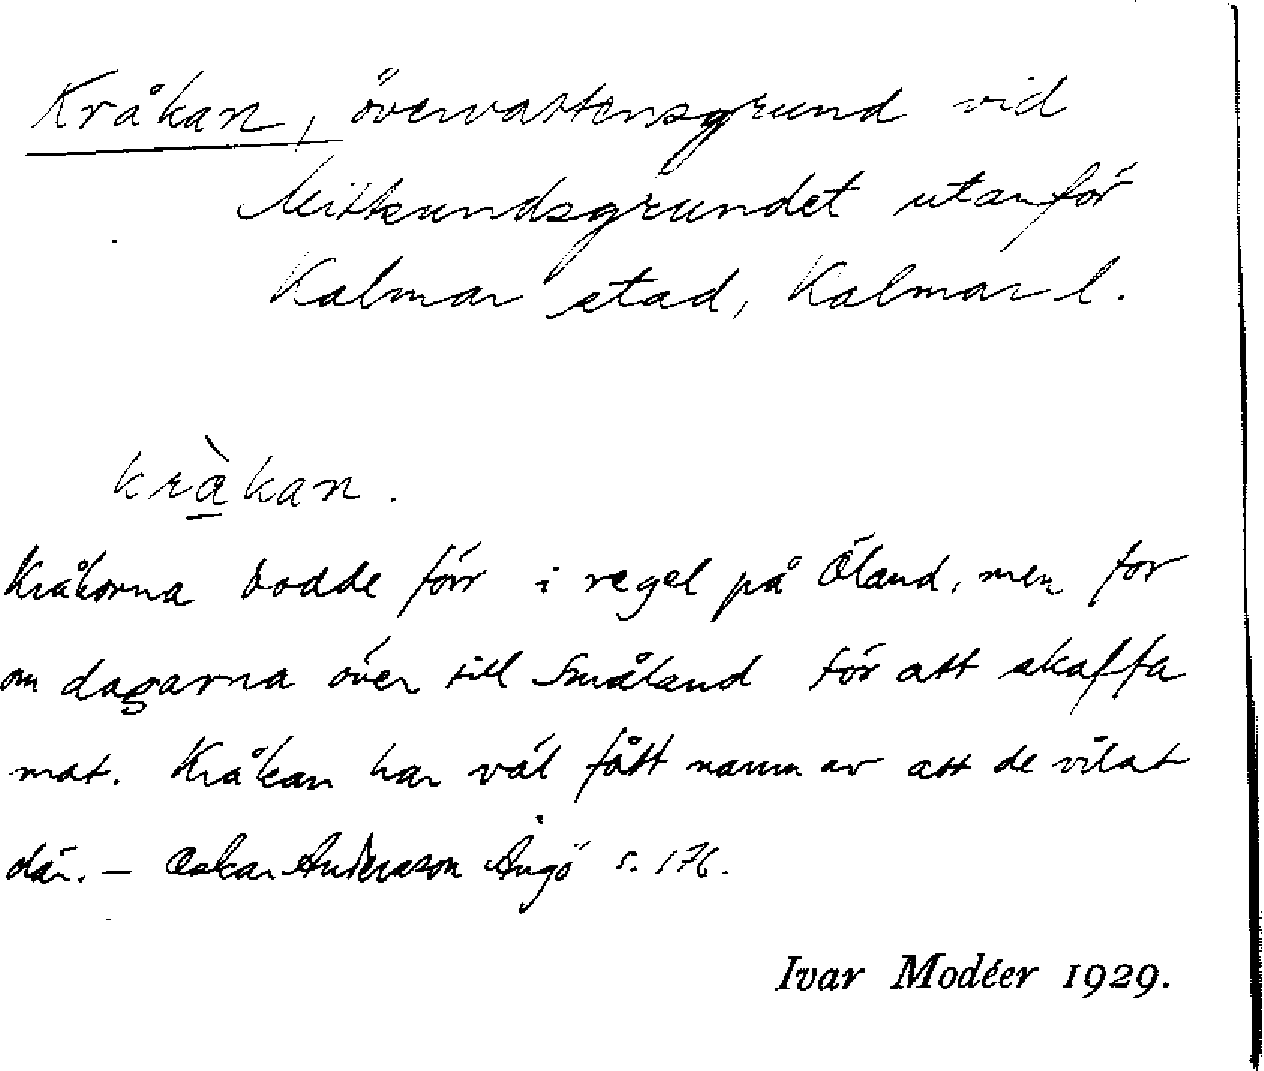 Kråkan, övervattensgrund vid
Mittsundsgrundet utanför
Kalmar stad, Kalmar l.
kràkan.
Kråkorna bodde förr i regel på Öland, men for
om dagarna över till Småland för att skaffa
mat. Kråkan har väl fått namn av att de vilat
där. – Oskar Andersson Ängö s. 176.
Ivar Modéer 1929.